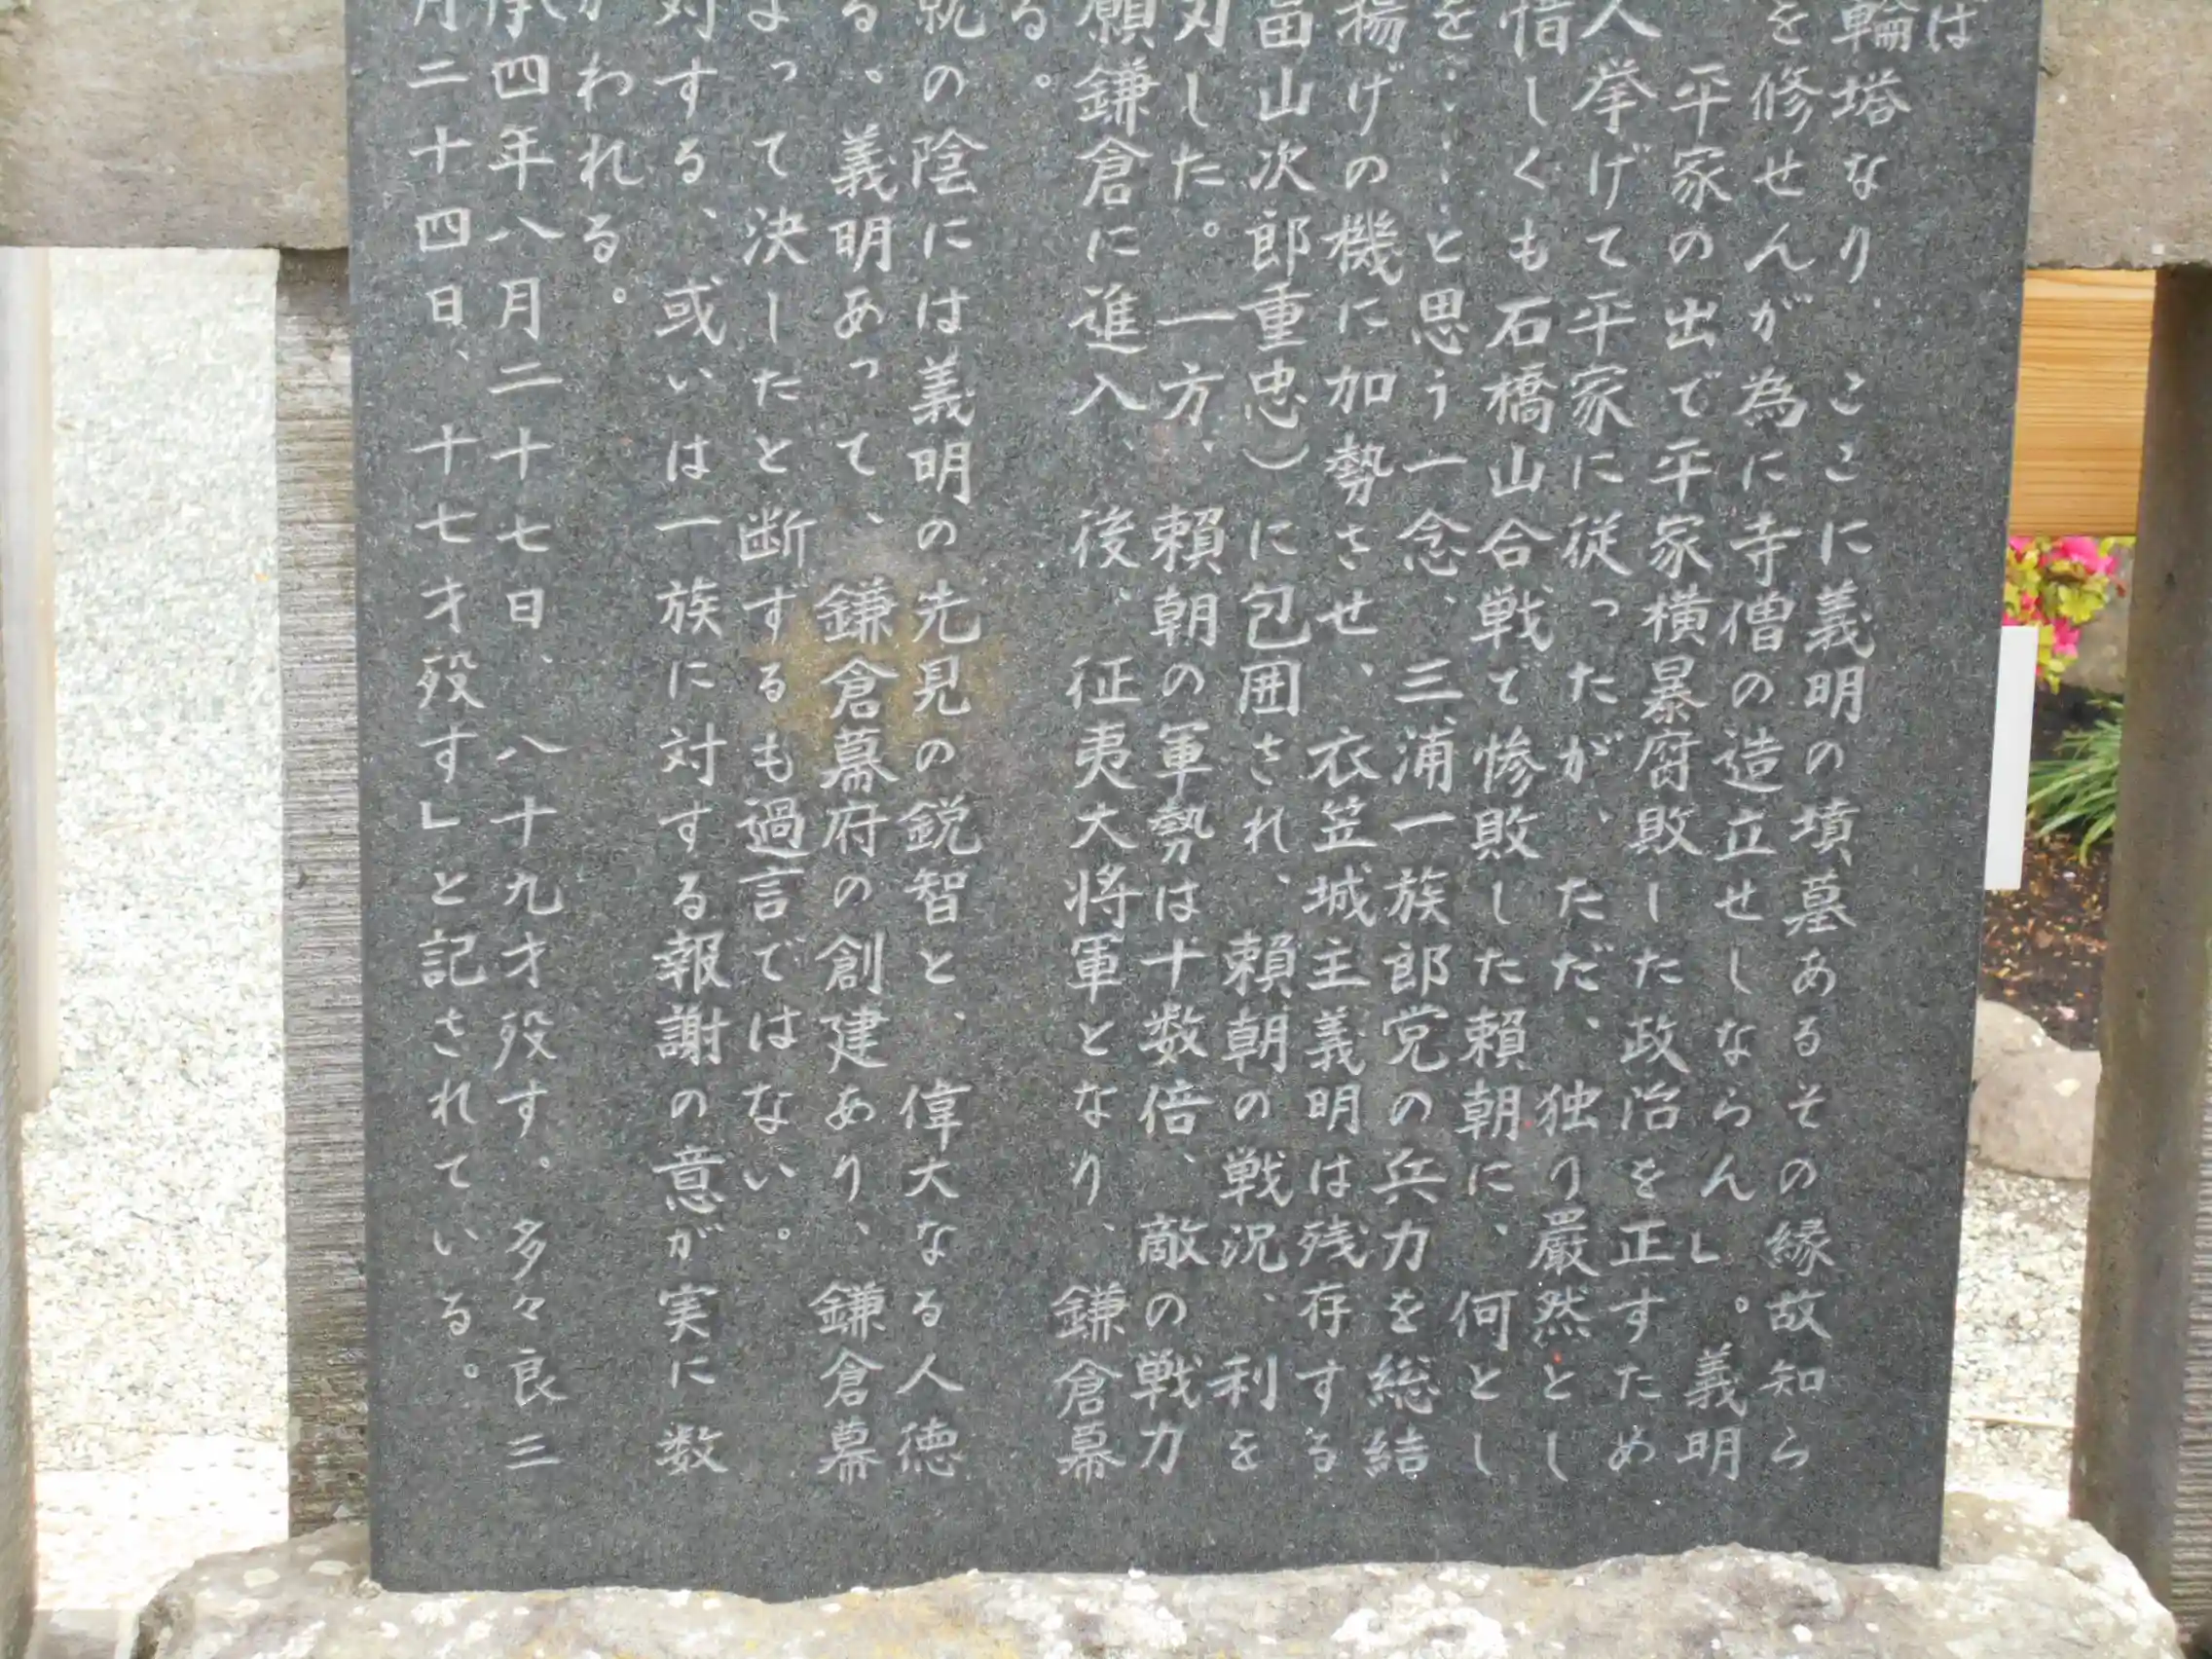 ば
輪塔なり、ここに義明の墳墓あるその縁故知ら
を修せんが為に寺僧の造立せしならん」。義明
平家の出で平家横暴腐敗した政治を正すため
人挙げて平家に従ったが、ただ、独り厳然とし
惜しくも石橋山合戦で惨敗した頼朝に、何とし
を……と思う一念、三浦一族郎党の兵力を総結
揚げの機に加勢させ、衣笠城主義明は残存する
畠山次郎重忠)に包囲され、頼朝の戦況、利を
刃した。一方、頼朝の軍勢は十数倍、敵の戦力
願鎌倉に進入、後、征夷大将軍となり、鎌倉幕
る。
就の陰には義明の先見の鋭智と、偉大なる人徳
る。義明あって、鎌倉幕府の創建あり、鎌倉幕
よって決したと断するも過言ではない。
対する、或いは一族に対する報謝の意が実に数
われる。
承四年八月二十七日、八十九才歿す。多々良三
月二十四日、十七才歿す」と記されている。